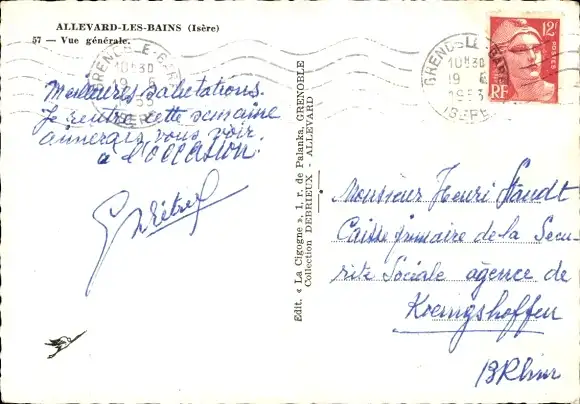 ALLEVARD-LES-BAINS (Isère)
57 - Vue générale.
GRENOBLE-GARE
10H30
19-5
1953
ISERE
GRENOBLE-GARE
10H30
19-5
1953
ISERE
12F
POSTES
RF
Meilleures salutations.
Je rentre cette semaine
aimerais vous voir
à l'occasion.
Edit. « La Cigogne », 1, r. de Palanka, GRENOBLE
Collection DEBRIEUX - ALLEVARD
Monsieur Henri Staudt
Caisse primaire de la Secu
rité Sociale agence de
Koenigshoffen
B Rhin